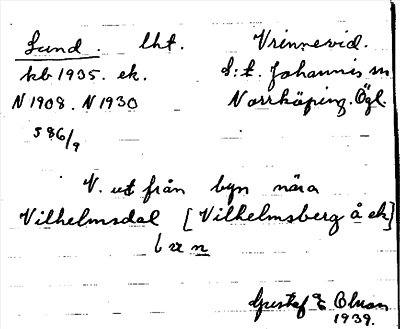 Lund. lht. Vrinnevid.
kb 1935. ek. S:t. Johannis sn
N 1908. N 1930 Norrköping. Ögl.
586/9
V. ut från byn nära
Vilhelmsdal [Vilhelmsberg å ek]
Gustaf E Olsson
1939.